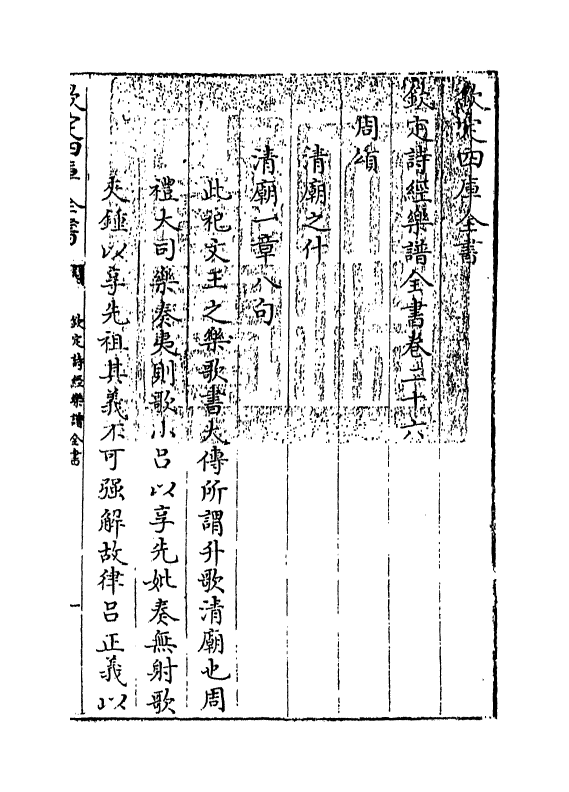 欽定四庫全書
欽定詩經樂譜全書卷二十六
周頌
清廟之什
清廟一章八句
此祀文王之樂歌書大傳所謂升歌清廟也周
禮大司樂奏夷則歌小呂以享先妣奏無射歌
夾鍾以享先祖其義不可强解故律呂正義以
欽定四庫全書
欽定詩經樂譜全書
一